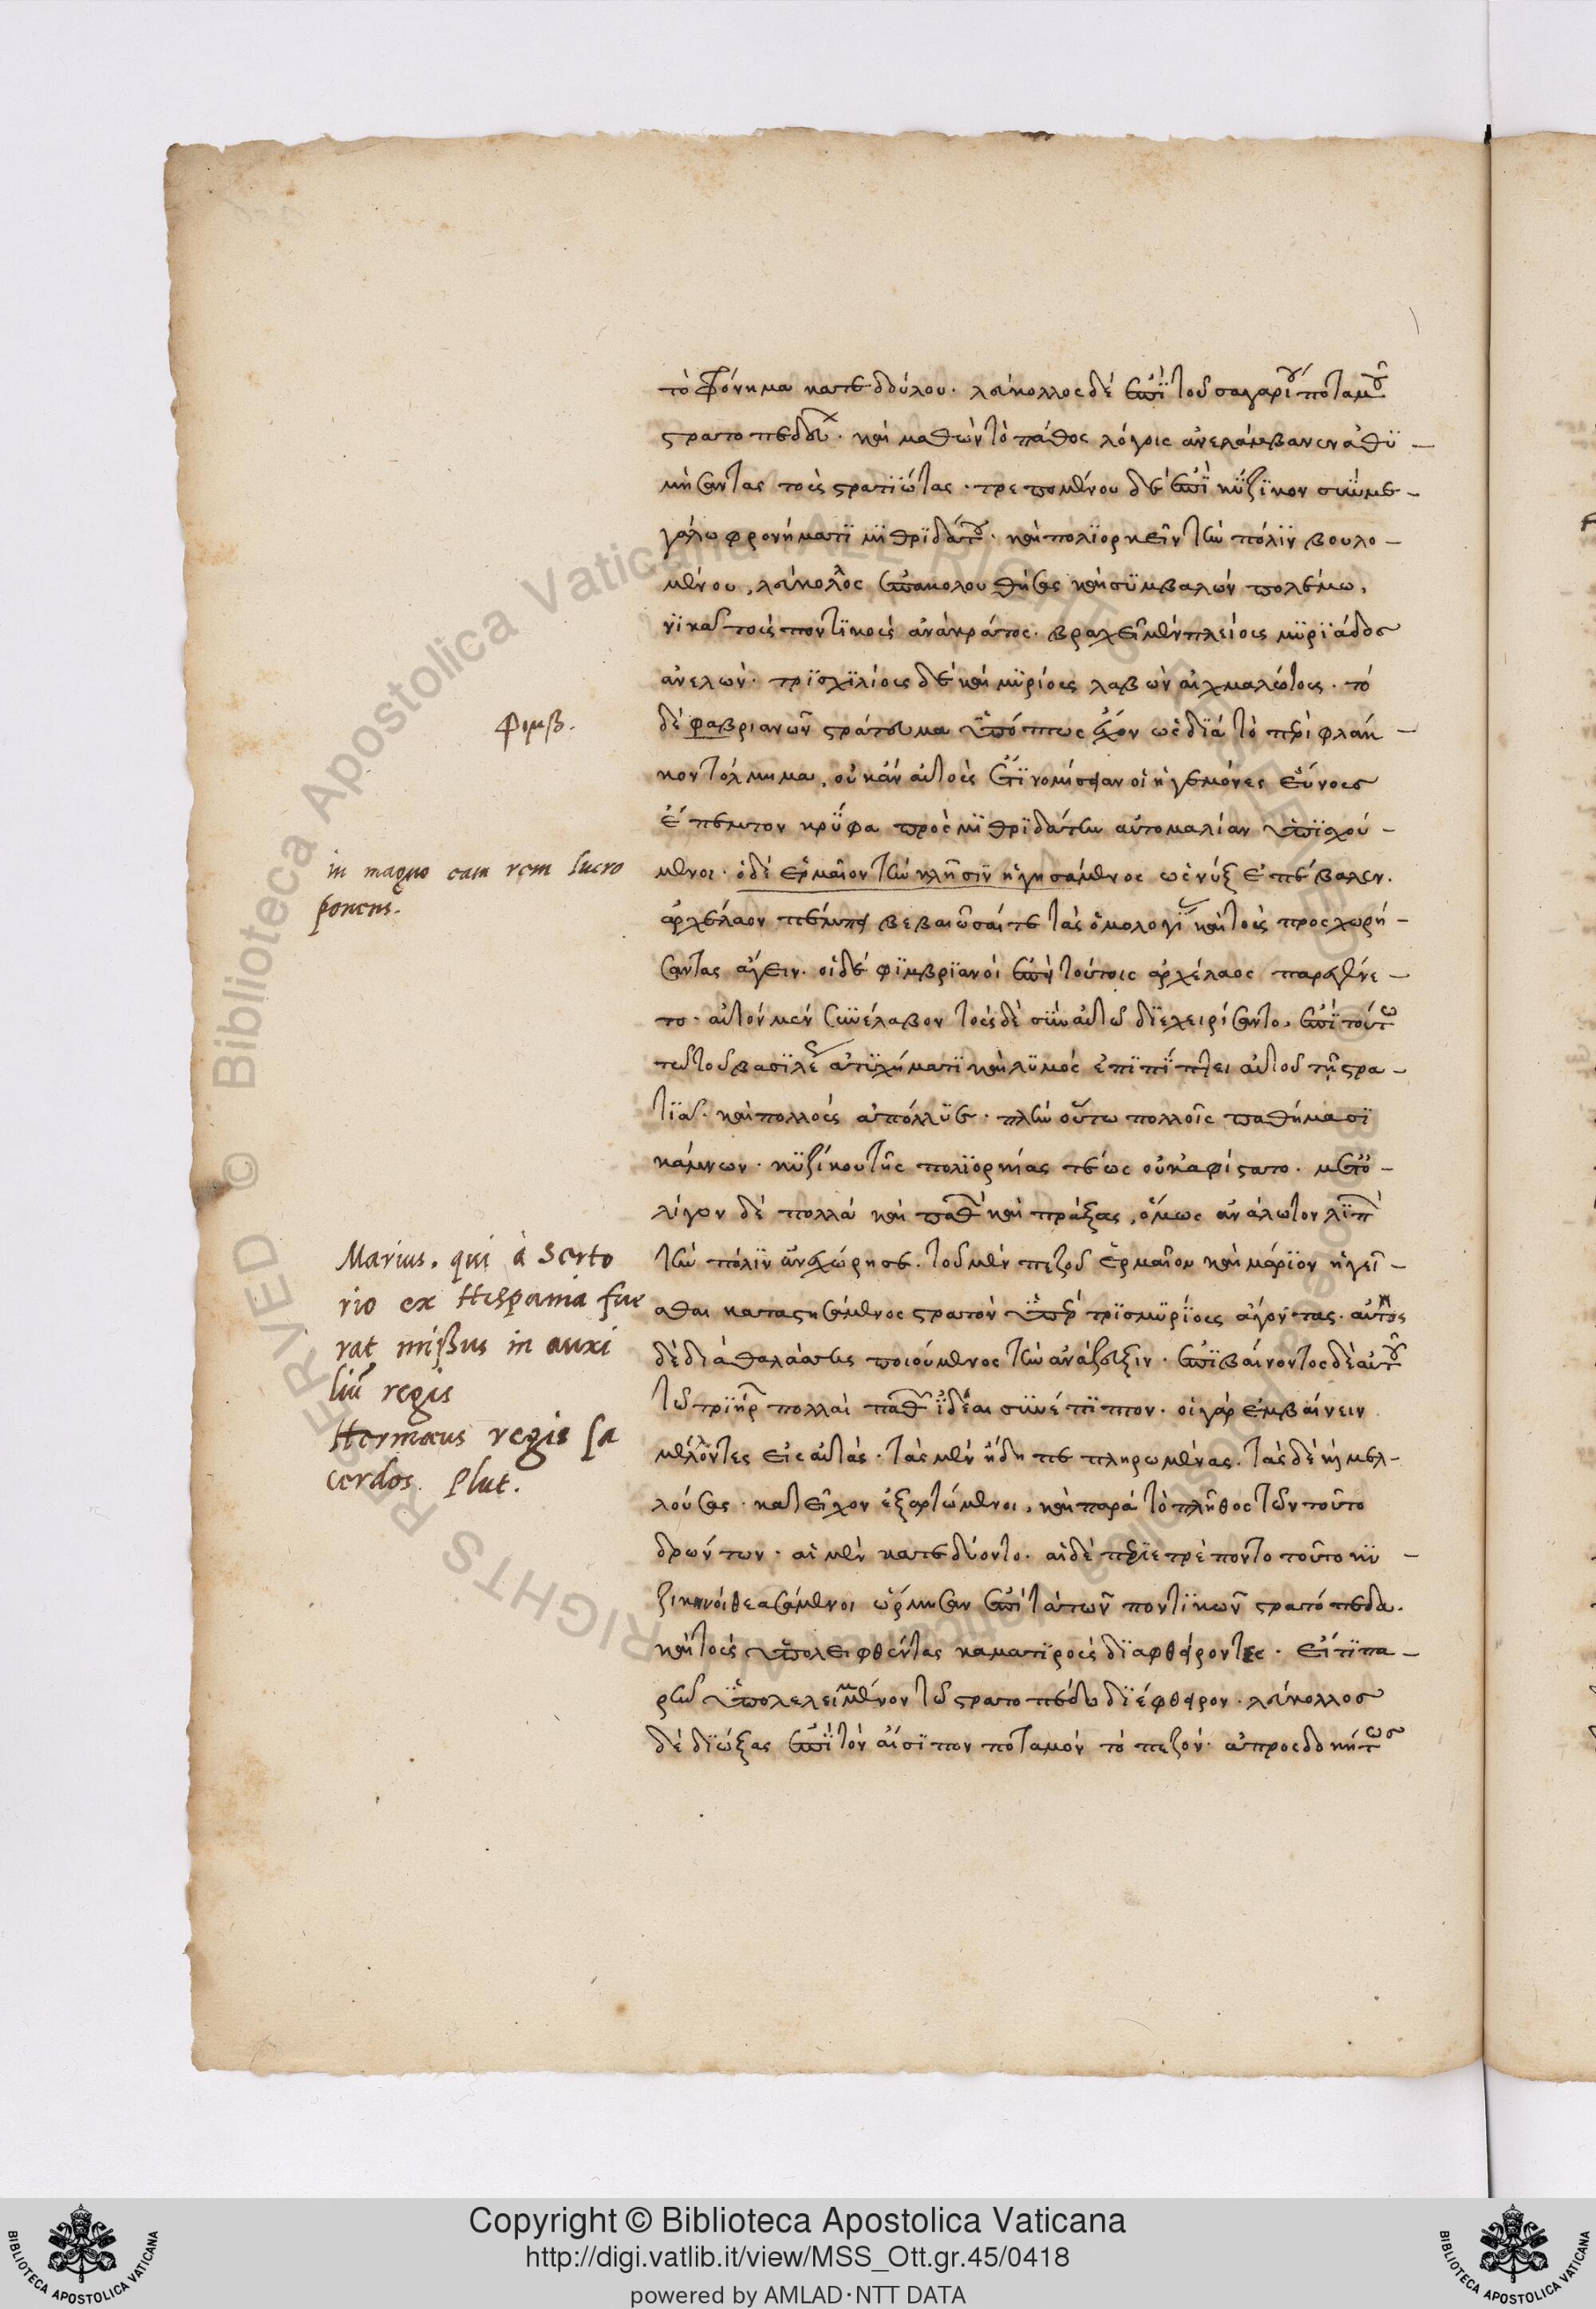 τὸ φρόνημα κατεδούλου. λεύκολλος δὲ ἐπὶ τοῦ σαγαρίου ποταμοῦ
στρατοπεδεύων. καὶ μαθὼν τὸ πάθος λόγοις ἀνελάμβανεν ἀθυ-
μήσαντας τοὺς στρατϊώτας. τρεπομένου δὲ ἐπὶ κύζϊκον σὺν με-
γάλω φρονήματϊ μϊθρϊδάτου. καὶ πολϊορκεῖν τὴν πόλϊν βουλο-
μένου, λεύκολλος ἐπακολουθήσας καὶ συμβαλὼν πολέμω,
νϊκᾶ τοὺς ποντϊκοὺς ἀνὰ κράτος. βραχεῖ μὲν πλείους μϋρϊάδος
ἀνελὼν. τρϊσχϊλίους δὲ καὶ μϋρίους λαβὼν αἰχμαλώτους. τὸ
δὲ φαβριανῶν στράτευμα ὑπόπτως ἔχον ὡς δϊὰ τὸ περὶ φλάκ-
κον τόλμημα, οὐκ ἂν αὐτοὺς ἔτϊ νομίσειαν οἱ ἡγεμόνες εὔνους
ἔπεμπον κρύφα πρὸς μϊθρϊδάτην αὐτομολίαν ὑπϊσχού-
μενοι. ὁ δὲ ἕρμαιον τὴν κλῆσϊν ἡγησάμενος ὡς νὺξ ἐπέβαλεν.
ἀρχέλαον πέμπει βεβαιῶσαί τε τὰς ὁμολογίας καὶ τοὺς προσχωρή-
σαντας ἄγειν. οἱ δὲ φϊμβρϊανοὶ ἐπεὶ τούτοις ἀρχέλαος παρεγένε-
το. αὐτὸν μὲν συνέλαβον τοὺς δὲ σὺν αὐτῶ δϊεχειρίσαντο. ἐπὶ τούτω
τῶ τοῦ βασϊλέως ἀτϋχήματϊ καὶ λϋμὸς ἐπϊπίπτει αὐτοῦ τῆ στρα-
τϊᾶ. καὶ πολλοὺς ἀπόλλϋε. πλὴν οὕτω πολλοῖς παθήμασϊ
κάμνων. κϋζίκου τῆς πολϊορκίας τέως οὐκ ἀφίστατο. μετ' ὀ-
λίγον δὲ πολλὰ καὶ παθὼν καὶ πράξας, ὅμως ἀνάλωτον λϊπὼν
τὴν πόλϊν ἀνεχώρησε. τοῦ μὲν πεζοῦ ἑρμαῖον καὶ μάρϊον ἡγεῖ-
σθαι καταστησάμενος στρατὸν ὑπὲρ τρϊσμυρίους ἄγοντας. αὐτὸς
δὲ διὰ θαλάσσης ποιούμενος τὴν ἀνάζευξιν. ἐπϊβαίνοντος δὲ αὐτοῦ
τῶν τρϊήρων πολλαὶ παθῶν ἰδέαι συνέπϊπτον. οἱ γὰρ ἐμβαίνειν
μέλλοντες εἰς αὐτὰς. τὰς μὲν ἤδη πεπληρωμένας. τὰς δὲ καὶ μελ-
λούσας. κατεῖχον ἐξαρτώμενοι, καὶ παρὰ τὸ πλῆθος τῶν τοῦτο
δρώντων. αἱ μὲν κατεδύοντο. αἱ δὲ περϊετρέποντο τοῦτο κϋ-
ζικηνοὶ θεασάμενοι ὥρμησαν ἐπὶ τὰ τῶν ποντϊκῶν στρατόπεδα.
καὶ τοὺς ὑπολειφθέντας καματϊροὺς δϊαφθείροντες. εἴ τϊ πα-
ρῆν ὑπολελειμμένον τῶ στρατοπέδω δϊέφθειρον. λεύκολλος
δὲ δϊώξας ἐπὶ τὸν αἴσϊπον ποταμὸν τὸ πεζὸν. ἀπροσδοκήτως
φιμβ.
in magno eam rem lucro
ponens.
Marius. qui à Serto
rio ex Hispania fue
rat missus in auxi
liũ regis
Hermæus regis sa
cerdos. Plut.
Copyright © Biblioteca Apostolica Vaticana
http://digi.vatlib.it/view/MSS_Ott.gr.45/0418
powered by AMLAD·NTT DATA
BIBLIOTECA APOSTOLICA VATICANA
BIBLIOTECA APOSTOLICA VATICANA